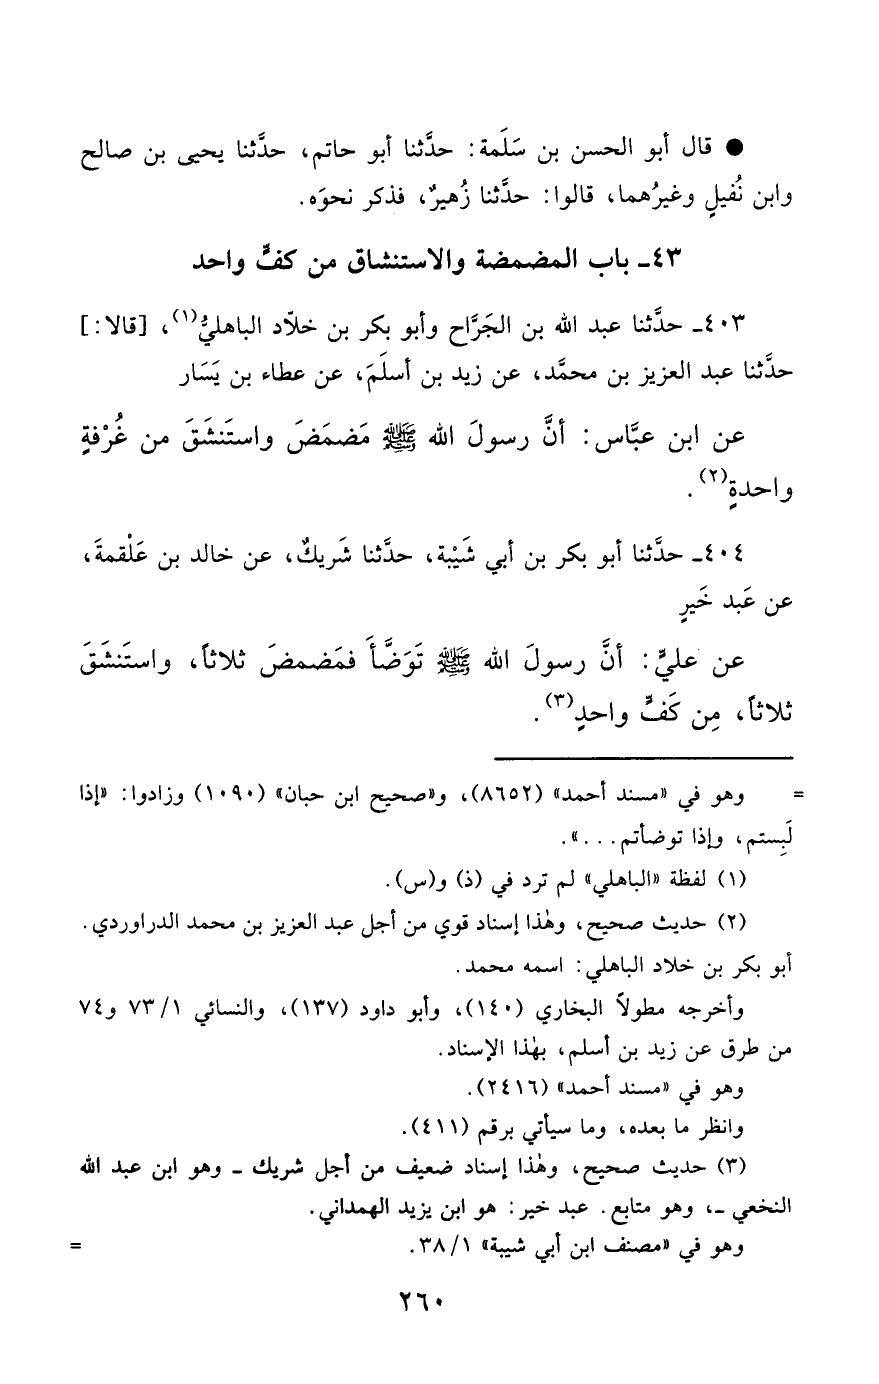 ● قال أبو الحسن بن سَلَمة: حدَّثنا أبو حاتم، حدَّثنا يحيى بن صالح
وابن نُفيلٍ وغيرُهما، قالوا: حدَّثنا زُهيرٌ، فذكر نحوَه.
٤٣ـ باب المضمضة والاستنشاق من كفٍّ واحد
٤٠٣ـ حدَّثنا عبد الله بن الجَرَّاح وأبو بكر بن خلّاد الباهليُّ(١)، [قالا:]
حدَّثنا عبد العزيز بن محمَّد، عن زيد بن أسلَمَ، عن عطاء بن يَسَار
عن ابن عبَّاس: أنَّ رسولَ الله ﷺ مَضمَضَ واستَنشَقَ من غُرْفةٍ
واحدةٍ(٢).
٤٠٤ـ حدَّثنا أبو بكر بن أبي شَيْبة، حدَّثنا شَريكٌ، عن خالد بن عَلْقمةَ،
عن عَبد خَيرٍ
عن عليٍّ: أنَّ رسولَ الله ﷺ تَوَضَّأَ فمَضمضَ ثلاثاً، واستَنشَقَ
ثلاثاً، مِن كَفٍّ واحدٍ(٣).
= وهو في «مسند أحمد» (٨٦٥٢)، و«صحيح ابن حبان» (١٠٩٠) وزادوا: «إذا
لَبِستم، وإذا توضأتم...».
(١) لفظة «الباهلي» لم ترد في (ذ) و(س).
(٢) حديث صحيح، وهٰذا إسناد قوي من أجل عبد العزيز بن محمد الدراوردي.
أبو بكر بن خلاد الباهلي: اسمه محمد.
وأخرجه مطولاً البخاري (١٤٠)، وأبو داود (١٣٧)، والنسائي ١/ ٧٣ و٧٤
من طرق عن زيد بن أسلم، بهٰذا الإسناد.
وهو في «مسند أحمد» (٢٤١٦).
وانظر ما بعده، وما سيأتي برقم (٤١١).
(٣) حديث صحيح، وهٰذا إسناد ضعيف من أجل شريك ـ وهو ابن عبد الله
النخعي ـ، وهو متابع. عبد خير: هو ابن يزيد الهمداني.
وهو في «مصنف ابن أبي شيبة» ١/ ٣٨. =
٢٦٠